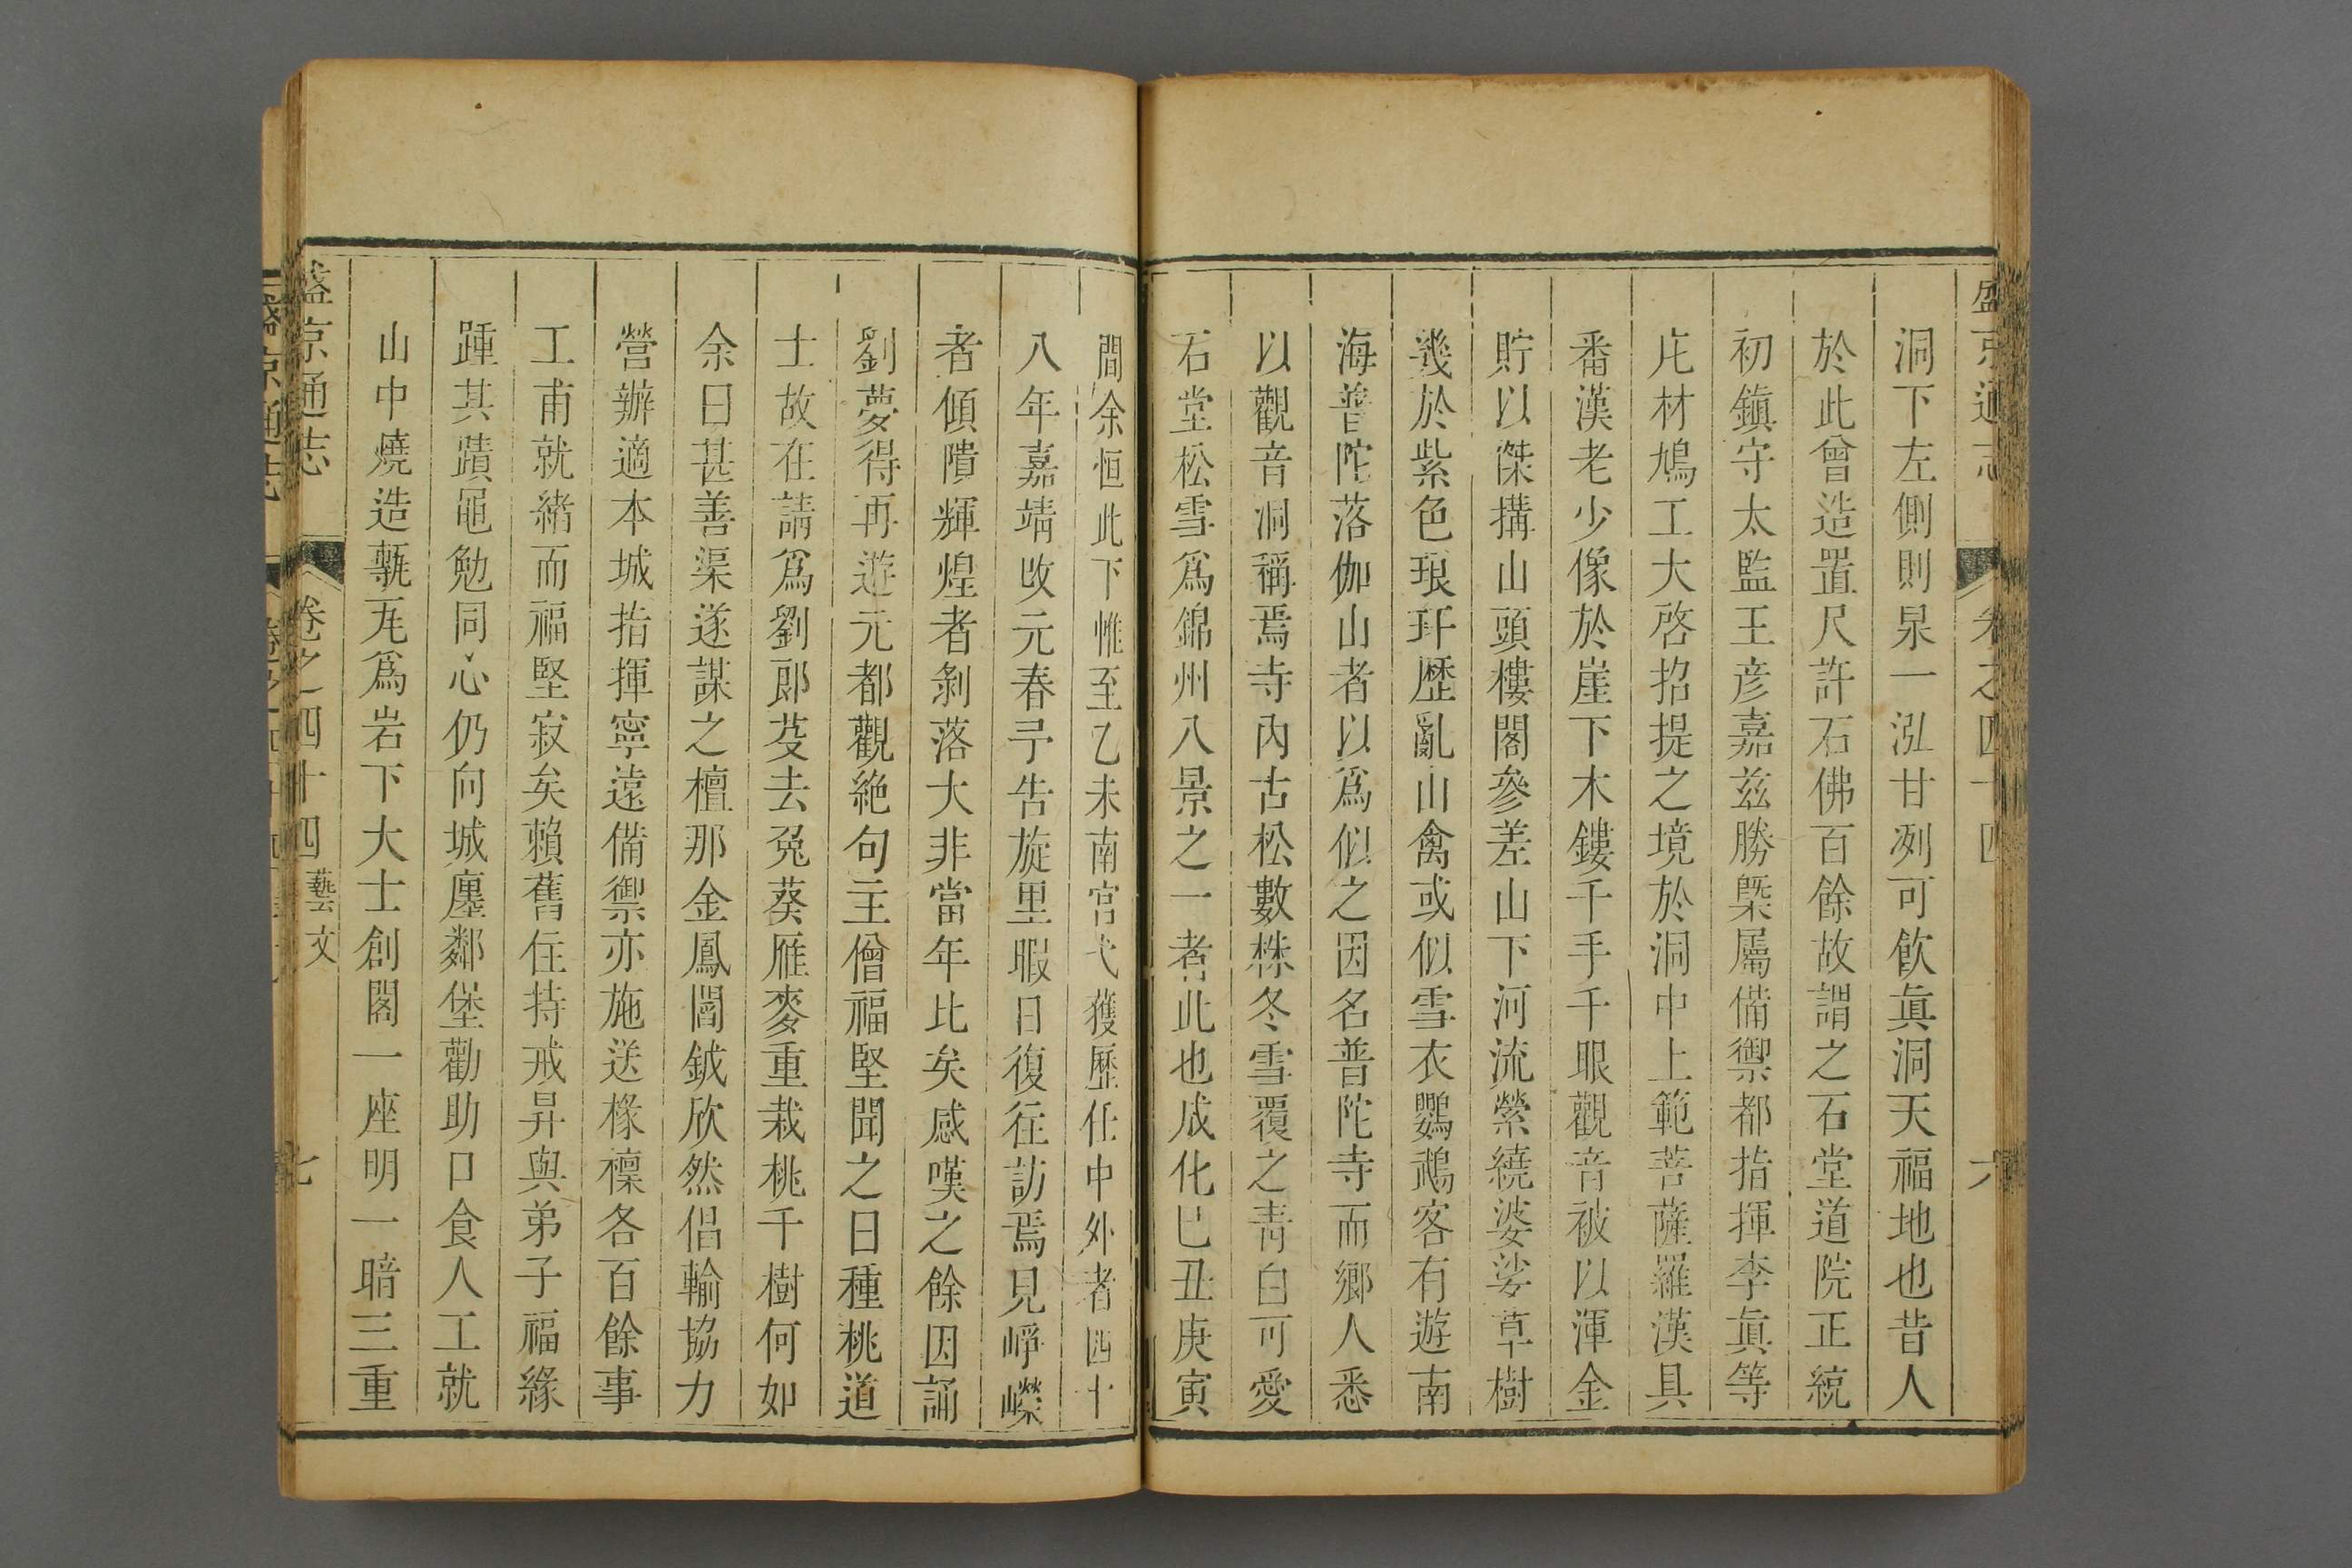 盛京通志 卷之四十四 六
洞下左側則杲一泓甘冽可飲眞洞天福地也昔人
於此曾造置尺許石佛百餘故謂之石堂道院正統
初鎭守太監王彦嘉茲勝槩屬備禦都指揮李眞等
庀材鳩工大啓招提之境於洞中上範菩薩羅漢具
番漢老少像於崖下木鏤千手千眼觀音被以渾金
貯以傑搆山頭樓閣參差山下河流縈繞婆娑草樹
幾於紫色琅玕歷亂山禽或似雪衣鸚鵡客有遊南
海普陀落伽山者以爲似之因名普陀寺而鄉人悉
以觀音洞稱焉寺內古松數株冬雪覆之靑白可愛
石堂松雪爲錦州八景之一者此也成化巳丑庚寅
間余恒此下惟至乙未南宮弋獲歷任中外者四十
八年嘉靖改元春予告旋里暇日復往訪焉見崢嶸
者傾隤輝煌者剝落大非當年比矣感嘆之餘因誦
劉夢得再遊元都觀絕句主僧福堅聞之日種桃道
士故在請爲劉郎芟去兔葵雁麥重栽桃千樹何如
余曰甚善渠遂謀之檀那金鳳閻鉞欣然倡輸協力
營辦適本城指揮寧遠備禦亦施送椽檁各百餘事
工甫就緖而福堅寂矣賴舊住持戒昇與弟子福緣
踵其蹟黽勉同心仍向城廛鄰堡勸助口食人工就
山中燒造甎瓦爲岩下大士創閣一座明一暗三重
盛京通志 卷之四十四 藝文 七